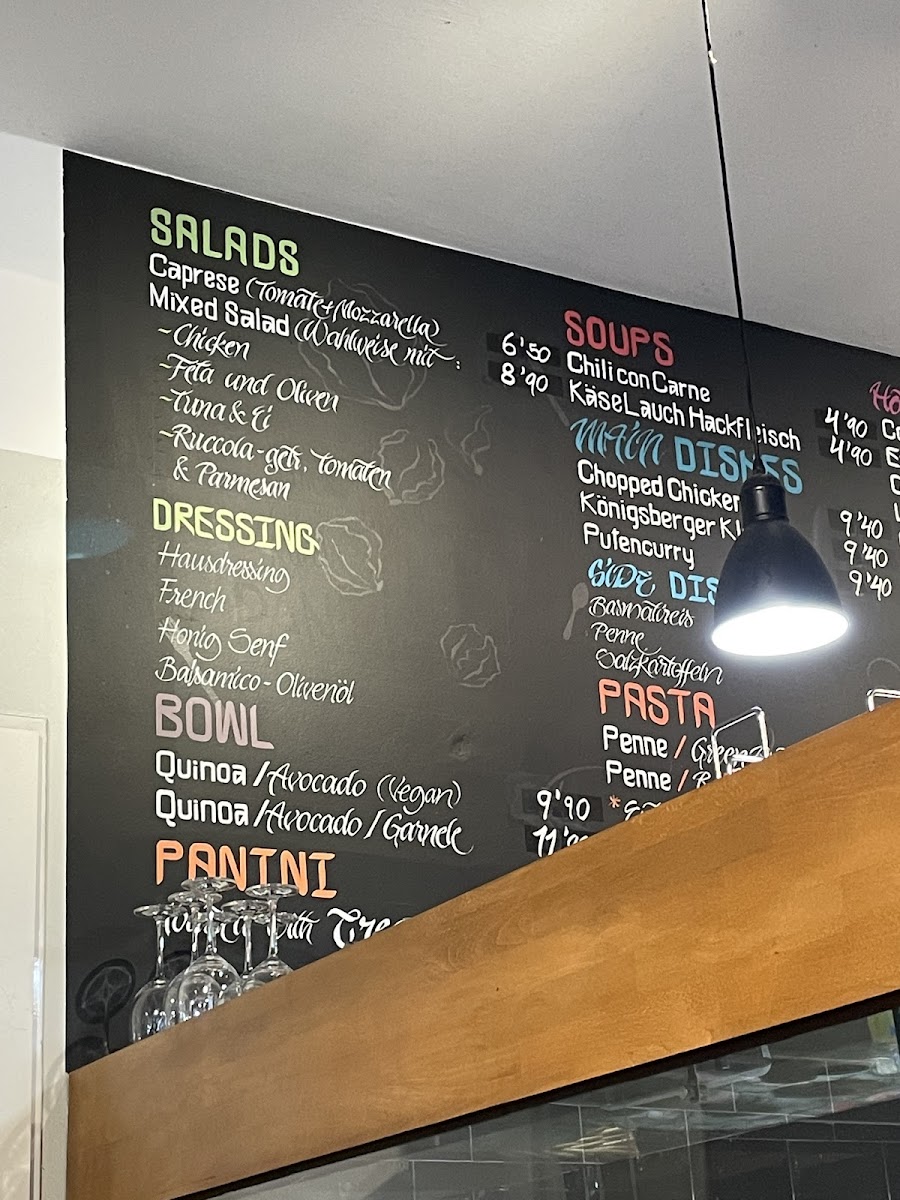 SALADS
Caprese (Tomate+Mozzarella) 6'50
Mixed Salad (Wahlweise mit: 8'90
-Chicken
-Feta und Oliven
-Tuna & Ei
-Ruccola-getr. Tomaten
& Parmesan
DRESSING
Hausdressing
French
Honig Senf
Balsamico-Olivenöl
BOWL
Quinoa /Avocado (Vegan) 9'90
Quinoa /Avocado / Garnele
PANINI
SOUPS
Chili con Carne 4'90
KäseLauch Hackfleisch 4'90
MAIN DISHES
Chopped Chicken 9'40
Königsberger 9'40
Putencurry 9'40
SIDE
Basmatireis
Penne
Salzkartoffeln
PASTA
Penne /
Penne /